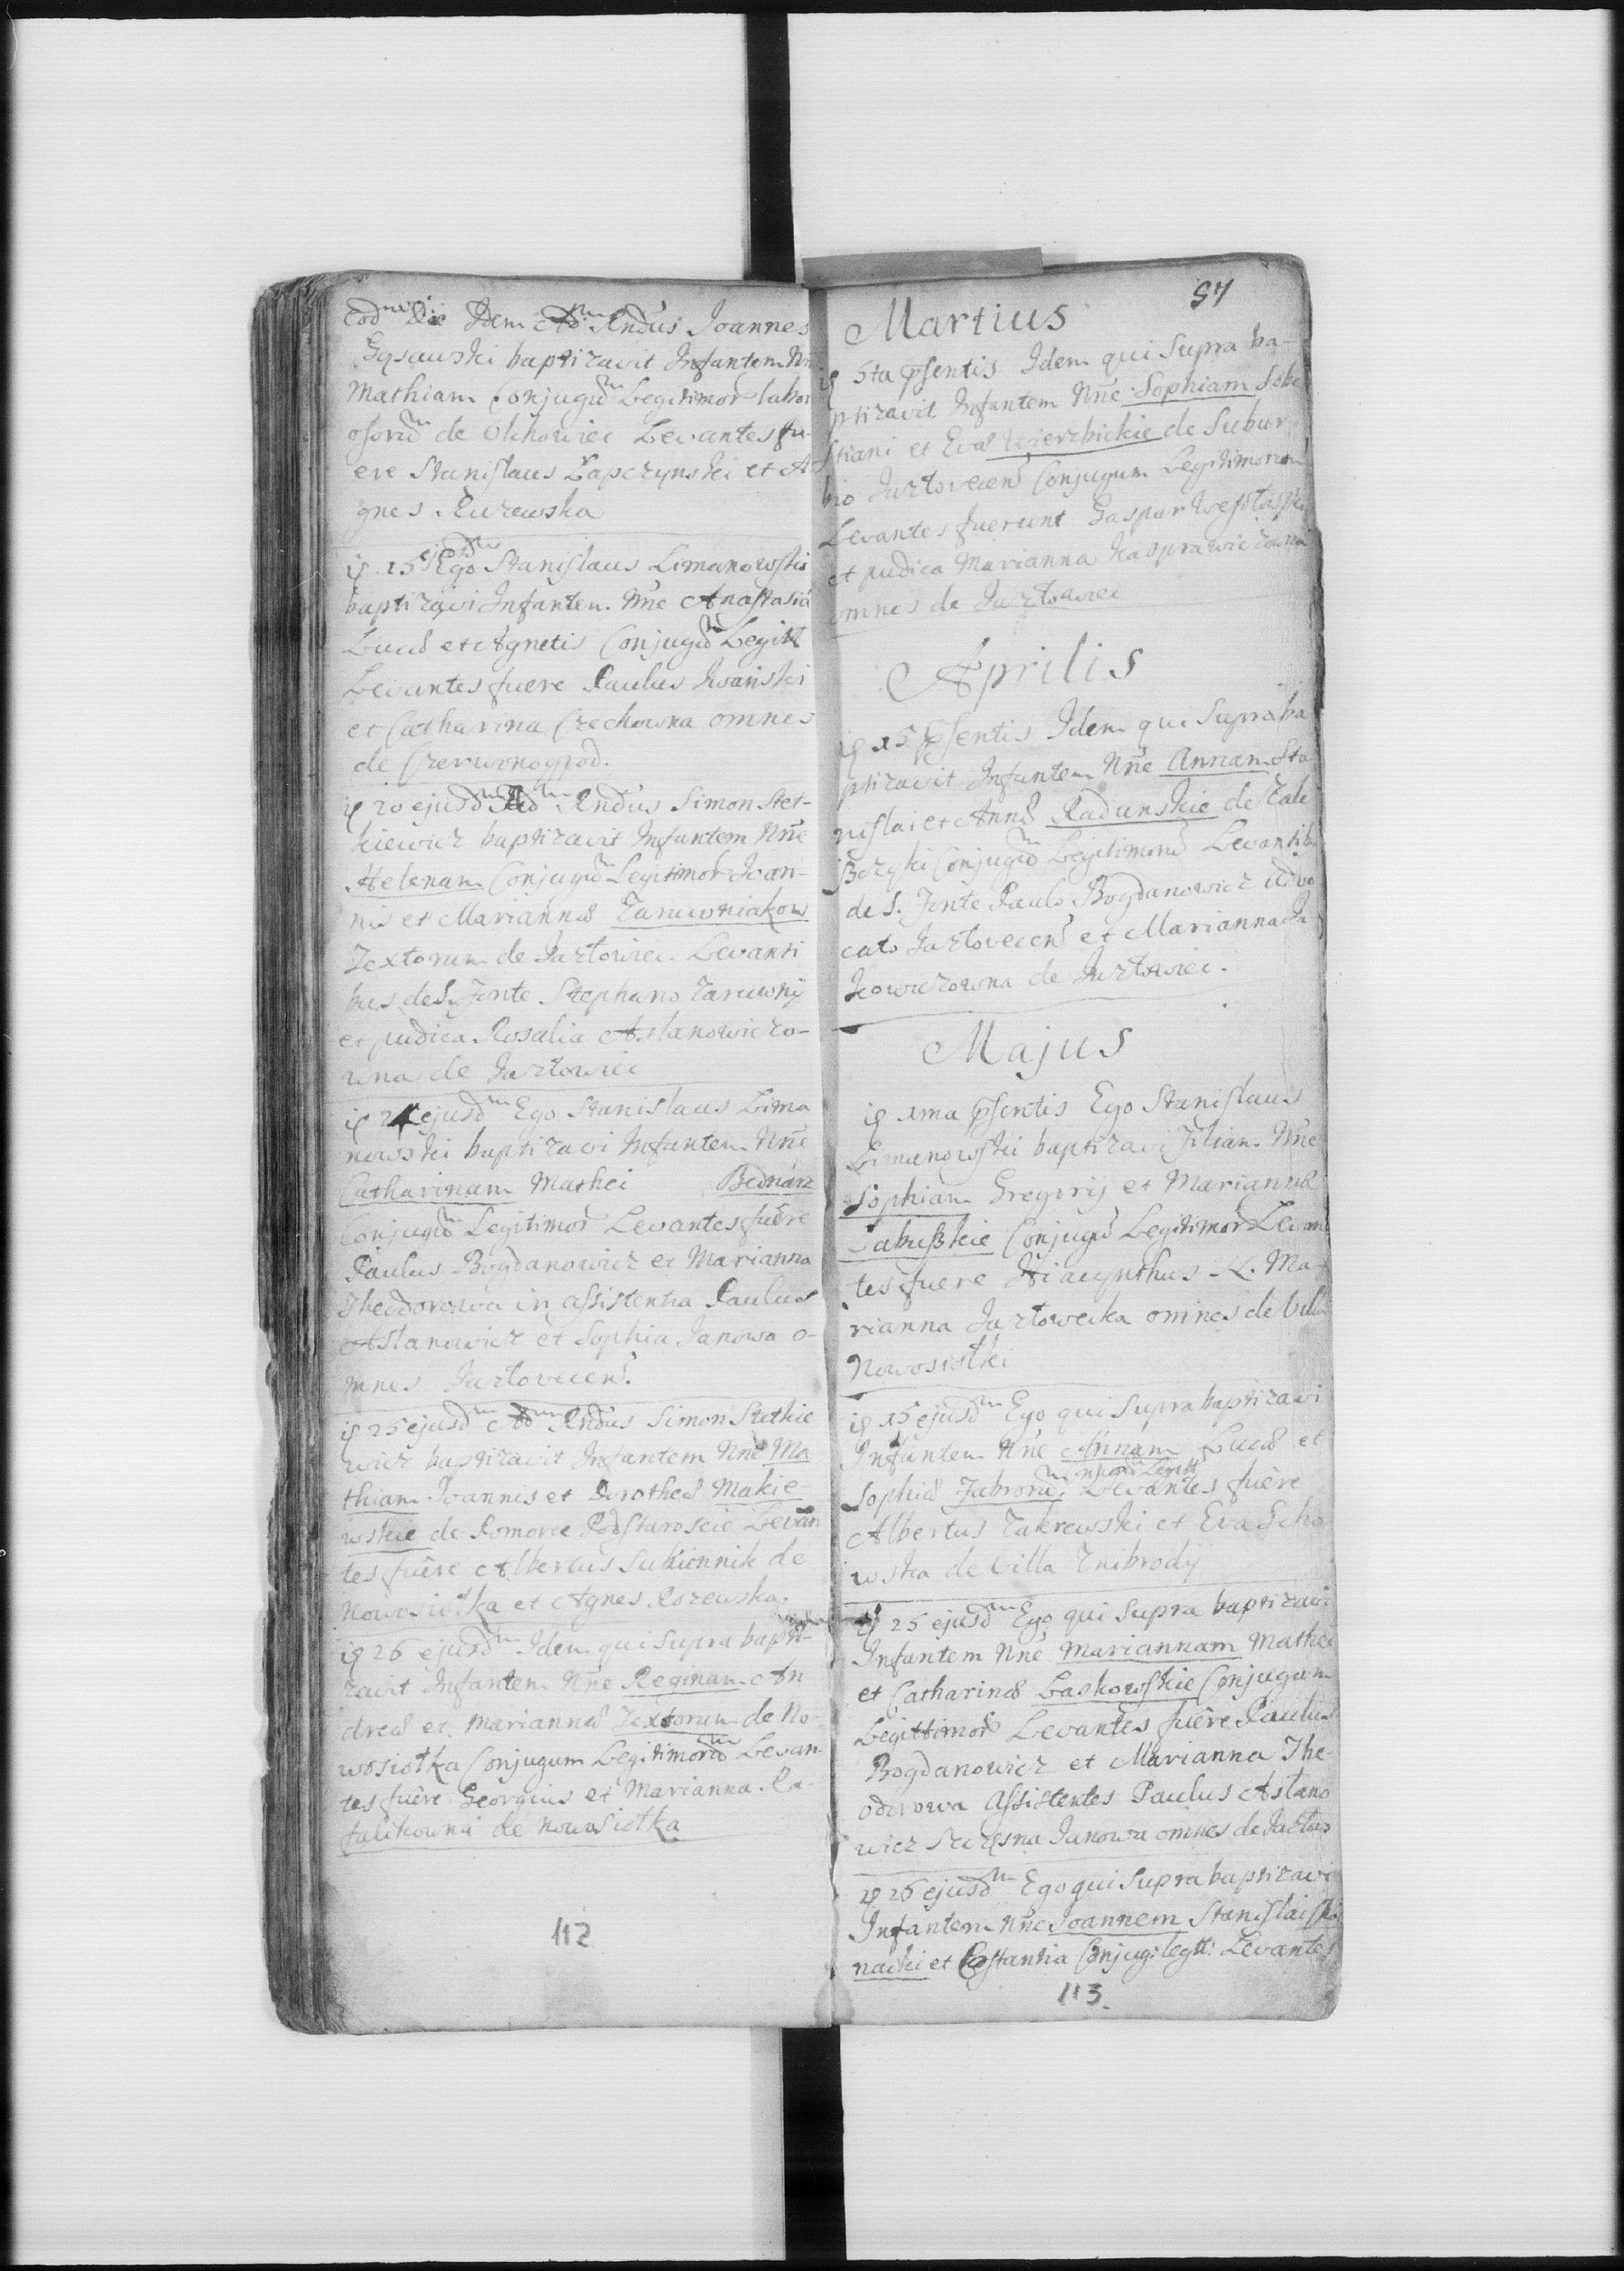 Eodem die Idem Adm Rndus Joannes
Gąsawski baptizavit Infantem Nne
Mathiam Conjugum Legitimor labori
osorum de Olchowiec Levantes fu-
ere Stanislaus Łapczynski et A
gnes Kurzewska
ię 15 ejusdm Ego Stanislaus Limanowski
baptizavi Infantem Nne Anastasia
Lucæ et Agnetis Conjugum Legitt
Levantes fuere Paulus Iwański
et Catharina Czechowna omnes
de Czerwonogrod.
ię 20 ejusdm Adm Rndus Simon Stet-
kiewicz baptizavit Infantem Nne
Helenam Conjugum Legitimor Joan-
nis et Mariannæ Zarwniakow
Textorum de Jazłowiec. Levanti
bus de S. Fonte Stephano Zarwny
et pudica Rosalia Astanowiczo-
wna de Jazłowiec
ię 24 ejusdm Ego Stanislaus Lima
nowski baptizavi Infantem Nne
Catharinam Mathei Bednarz
Conjugum Legitimor Levantes fuere
Paulus Bogdanowicz et Marianna
Theodorowa in assistentia Paulus
Astanowicz et Sophia Janowa o-
mnes Jazłovecens
ię 25 ejusdm Adm Rndus Simon Stetkie
wicz baptizavit Infantem Nne Ma
thiam Joannis et Dorotheæ Makie
wskie de Pomorce Podstaroscie Levan
tes fuere Albertus Sukiennik de
Nowosiołka et Agnes Rozewska
ię 26 ejusdm Idem qui Supra bapti-
zavit Infantem Nne Reginam An
dreæ et Mariannæ Textorum de No-
wosiołka Conjugum Legitimorum Levan-
tes fuere Georgius et Marianna Ra-
falikowna de Nowosiołka
112
57
Martius
ię 5ta psentis Idem qui Supra ba-
ptizavit Infantem Nne Sophiam Seba
stiani et Evæ Wierzbickie de Subur
bio Jazłovecens Conjugum Legitimorum
Levantes fuerunt Gaspar
et pudica Marianna Kasprawiczowna
omnes de Jazłowiec
Aprilis
ię 15 psentis Idem qui Supra ba
ptizavit Infantem Nne Annam Sta
nislai et Annæ Radunskie de Zale
szczyki Conjugum Legitimorum Levantib
de S. Fonte Paulo Bogdanowicz Advo
cato Jazłovecens et Marianna
Jazłowiec.
Majus
ię 1ma psentis Ego Stanislaus
Limanowski baptizavi Filiam Nne
Sophiam Gregorij et Mariannæ
Conjugum Legitimor Levan
tes fuere Hiacynthus K. Ma-
rianna Jazłowecka omnes de villa
Nowosiołki
ię 15 ejusdm Ego qui Supra baptizavi
Infantem Nne Annam Lucæ et
Sophiæ Fabrorum Conjugum Legitt Levantes fuere
Albertus Zakrewski et Eva
wska de Villa Znibrody
ię 25 ejusdm Ego qui Supra baptizavi
Infantem Nne Mariannam Mathei
et Catharinæ Laskowskie Conjugum
Legittimor Levantes fuere Paulus
Bogdanowicz et Marianna The-
odorowa Assistentes Paulus Astano
wicz Szczęsna Janowa omnes de Jazłow
ię 26 ejusdm Ego qui Supra baptizavi
Infantem Nne Joannem Stanislai
nacki et Costantia Conjug: legtt: Levantes
113